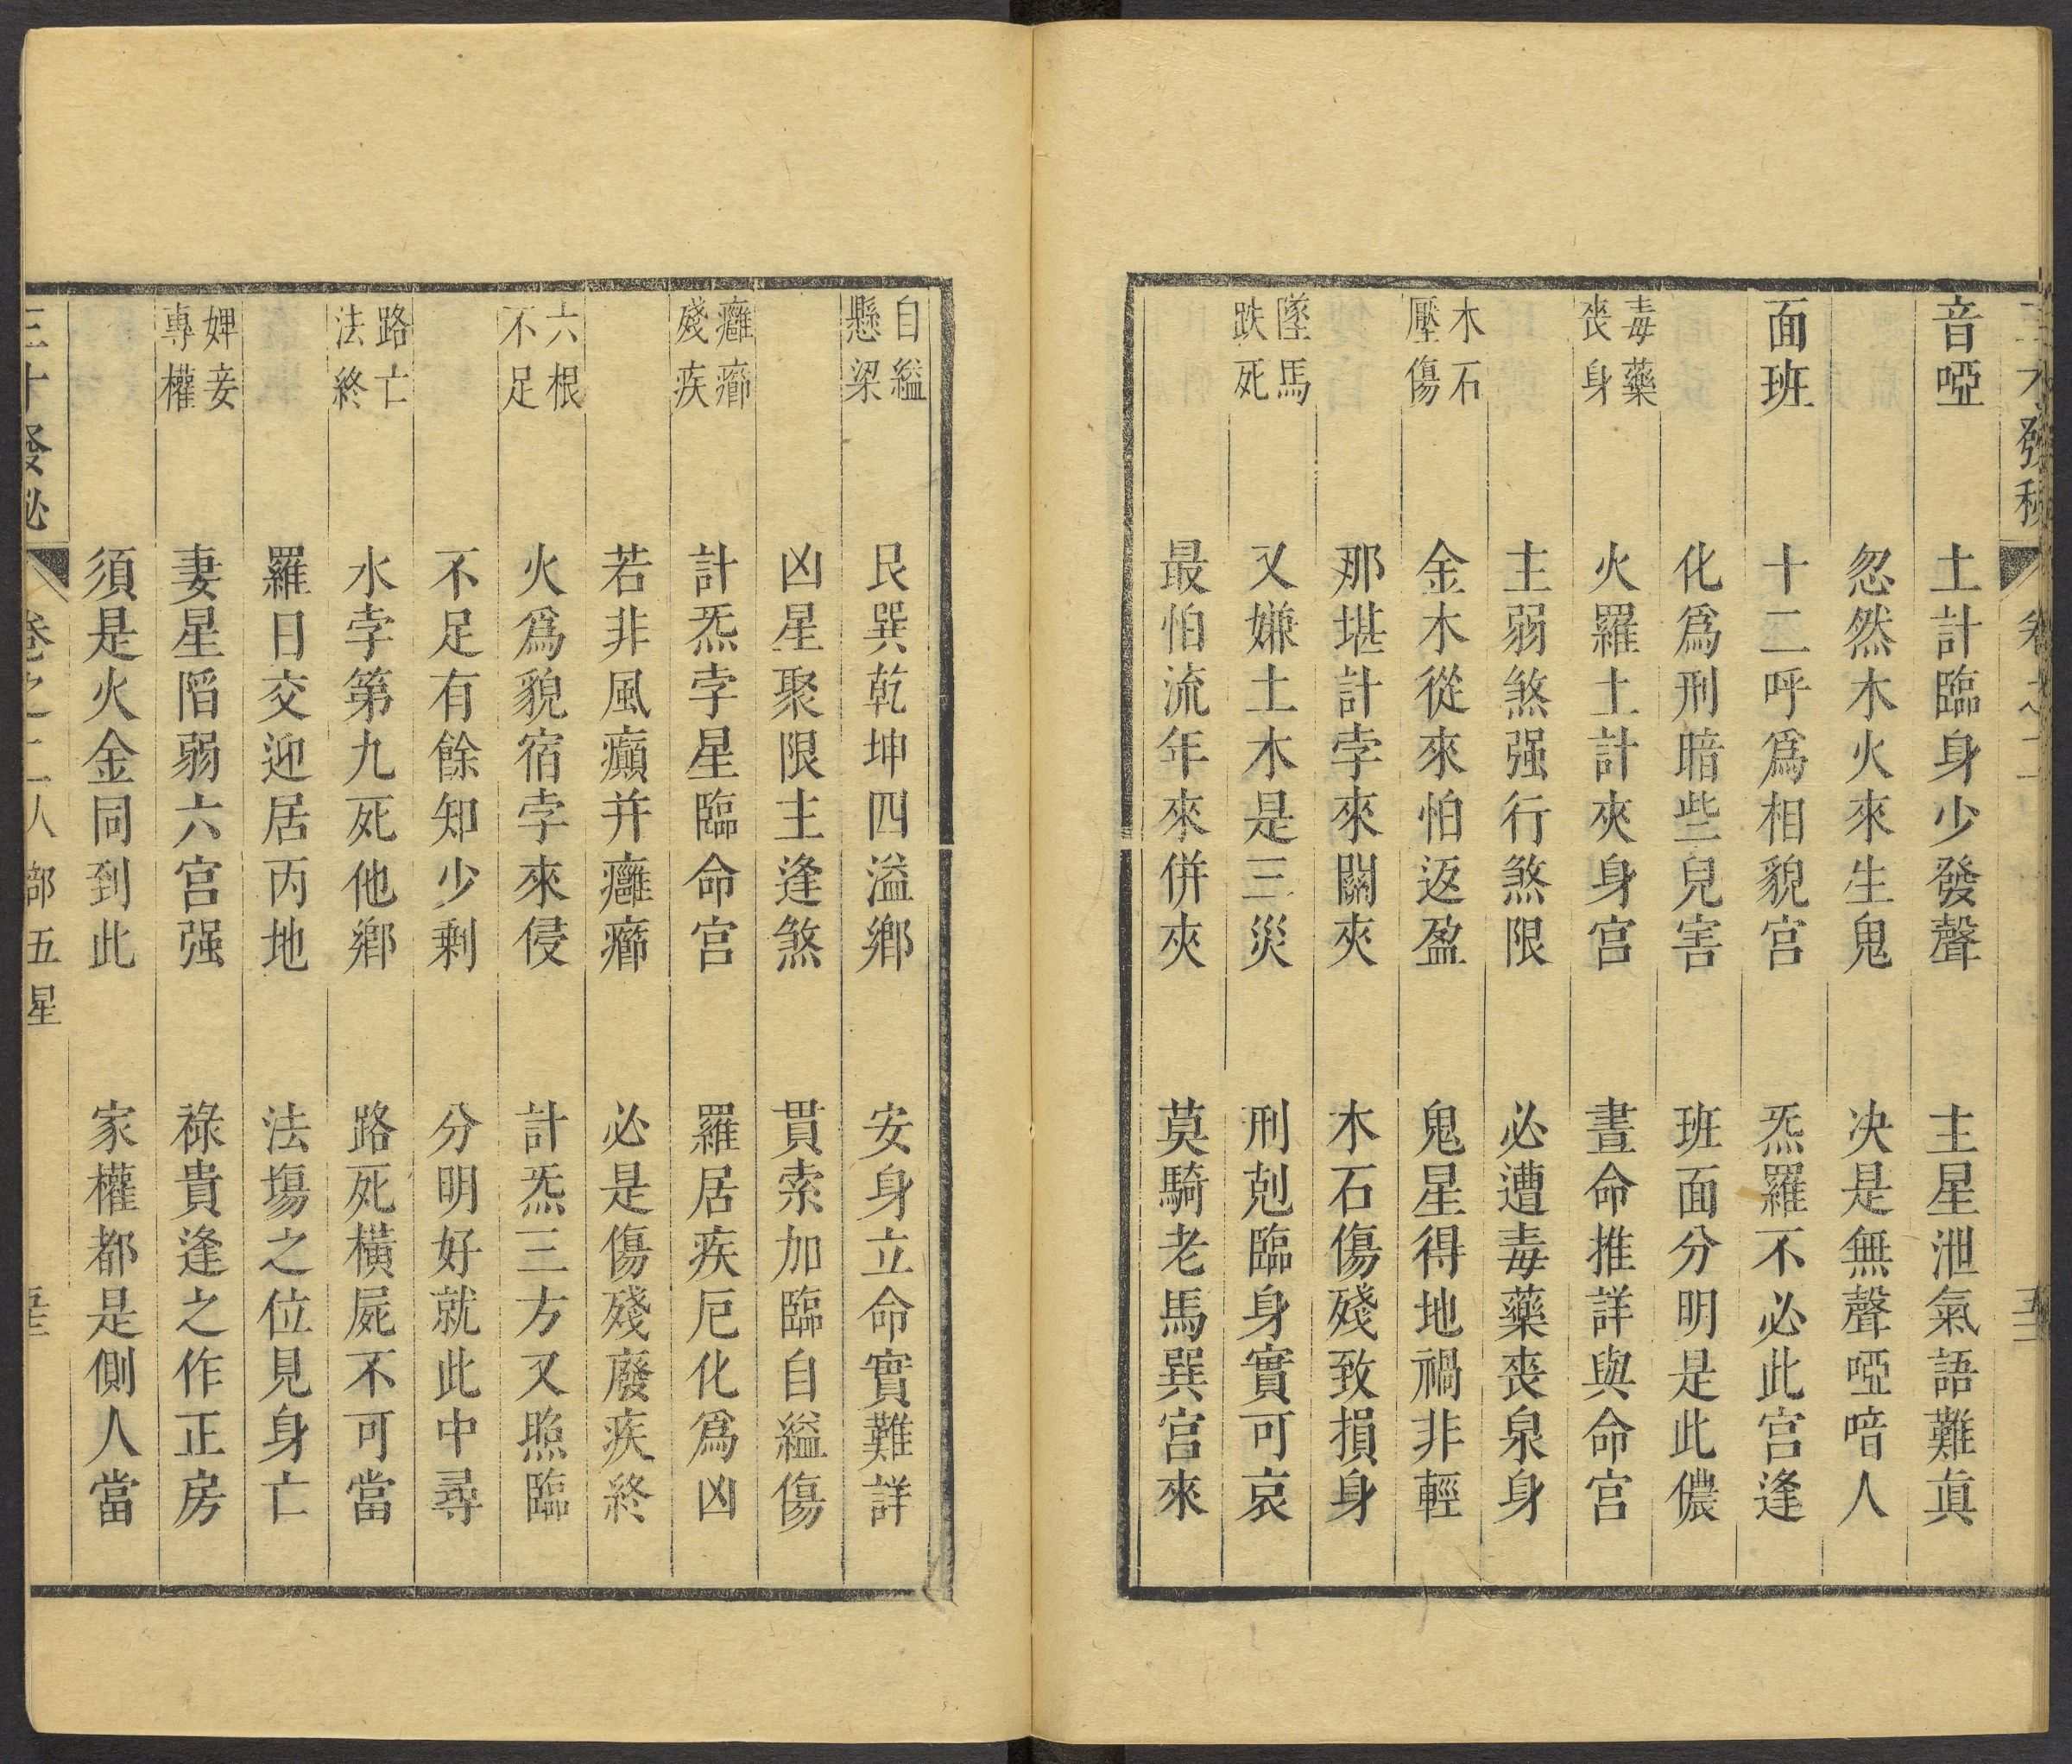 音啞 土計臨身少發聲 主星泄氣語難眞
忽然木火來生鬼 决是無聲啞喑人
面班 十二呼爲相貌宫 炁羅不必此宫逢
化爲刑暗些兒害 班面分明是此儂
毒藥喪身 火羅土計夾身宫 晝命推詳與命宫
主弱煞强行煞限 必遭毒藥喪泉身
木石壓傷 金木從來怕返盈 鬼星得地禍非輕
那堪計孛來關夾 木石傷殘致損身
墜馬跌死 又嫌土木是三災 刑剋臨身實可哀
最怕流年來併夾 莫騎老馬巽宫來
自縊懸梁 艮巽乾坤四溢鄉 安身立命實難詳
凶星聚限主逢煞 貫索加臨自縊傷
癱癤殘疾 計炁孛星臨命宫 羅居疾厄化爲凶
若非風癲并癱癤 必是傷殘廢疾終
六根不足 火爲貌宿孛來侵 計炁三方又照臨
不足有餘知少剩 分明好就此中尋
路亡法終 水孛第九死他鄉 路死橫屍不可當
羅日交迎居丙地 法塲之位見身亡
婢妾專權 妻星陷弱六宫强 祿貴逢之作正房
須是火金同到此 家權都是側人當
卷之二人部五星